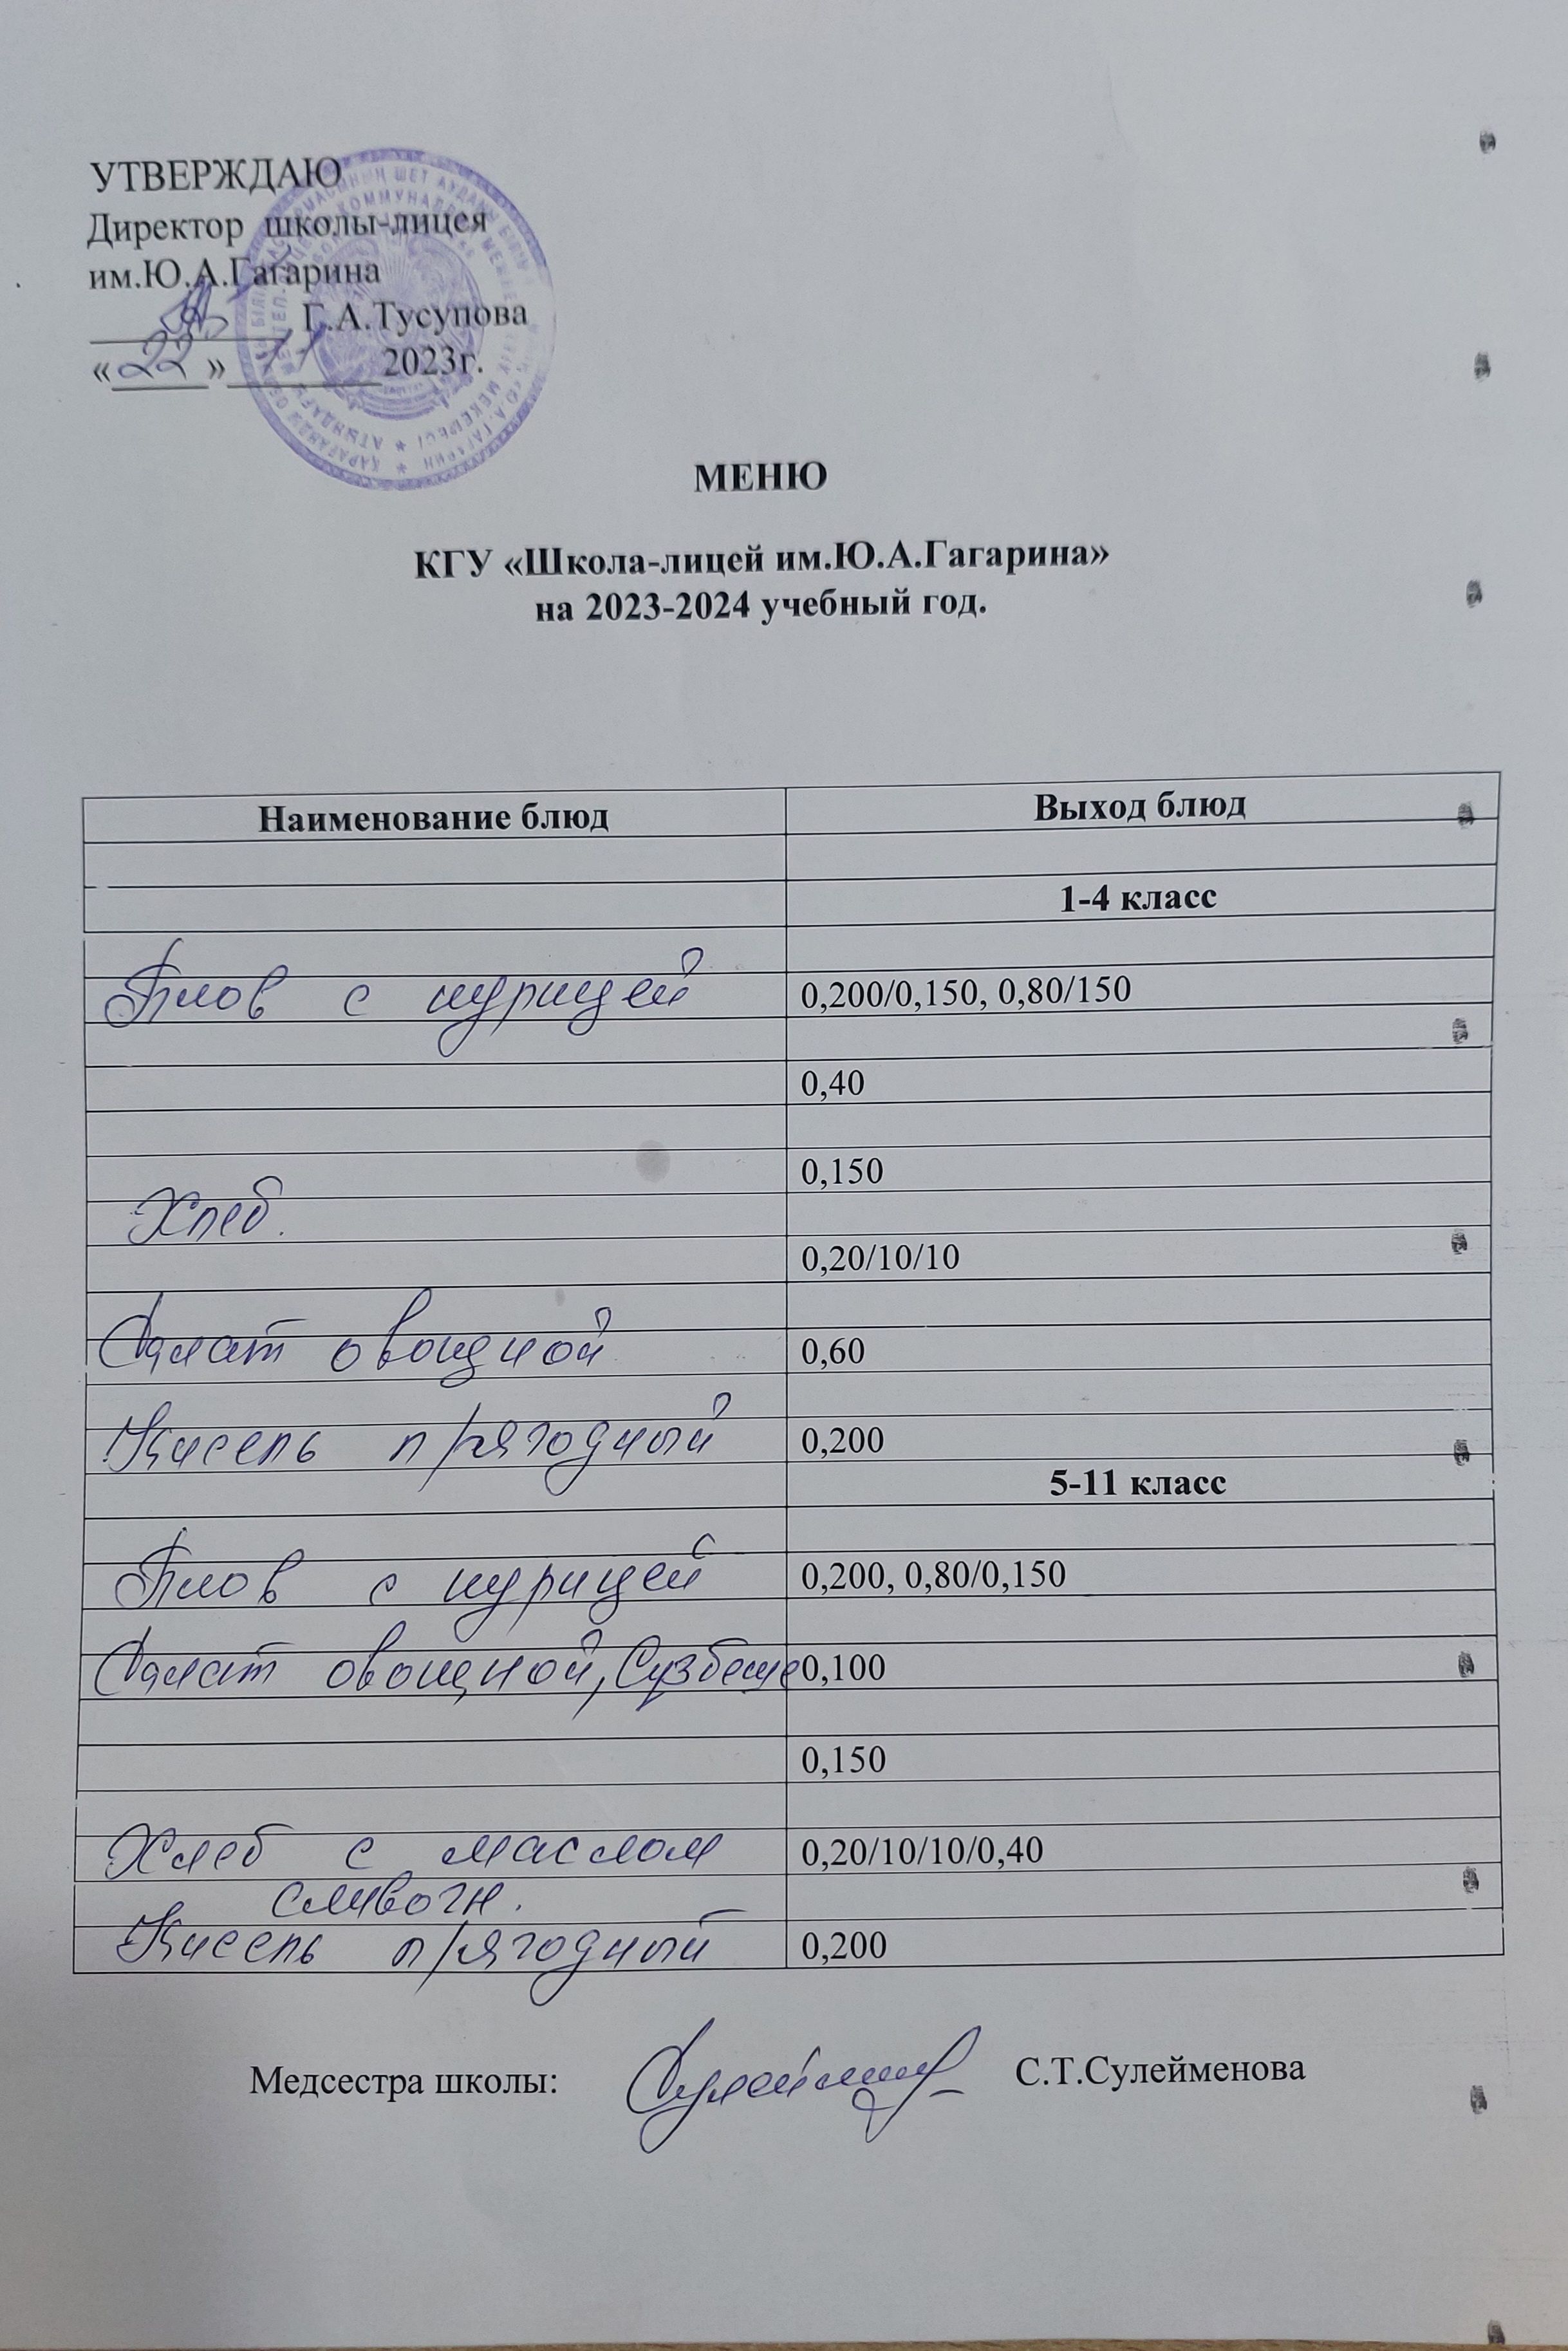 УТВЕРЖДАЮ
Директор школы-лицея
им.Ю.А.Гагарина
Г.А.Тусупова
«22» 11 2023г.
МЕНЮ
КГУ «Школа-лицей им.Ю.А.Гагарина»
на 2023-2024 учебный год.
Наименование блюд Выход блюд
1-4 класс
Плов с курицей 0,200/0,150, 0,80/150
0,40
0,150
Хлеб.
0,20/10/10
Салат овощной 0,60
Кисель п/ягодный 0,200
5-11 класс
Плов с курицей 0,200, 0,80/0,150
Салат овощной, 0,100
0,150
Хлеб с маслом 0,20/10/10/0,40
сливочн.
Кисель п/ягодный 0,200
Медсестра школы: С.Т.Сулейменова